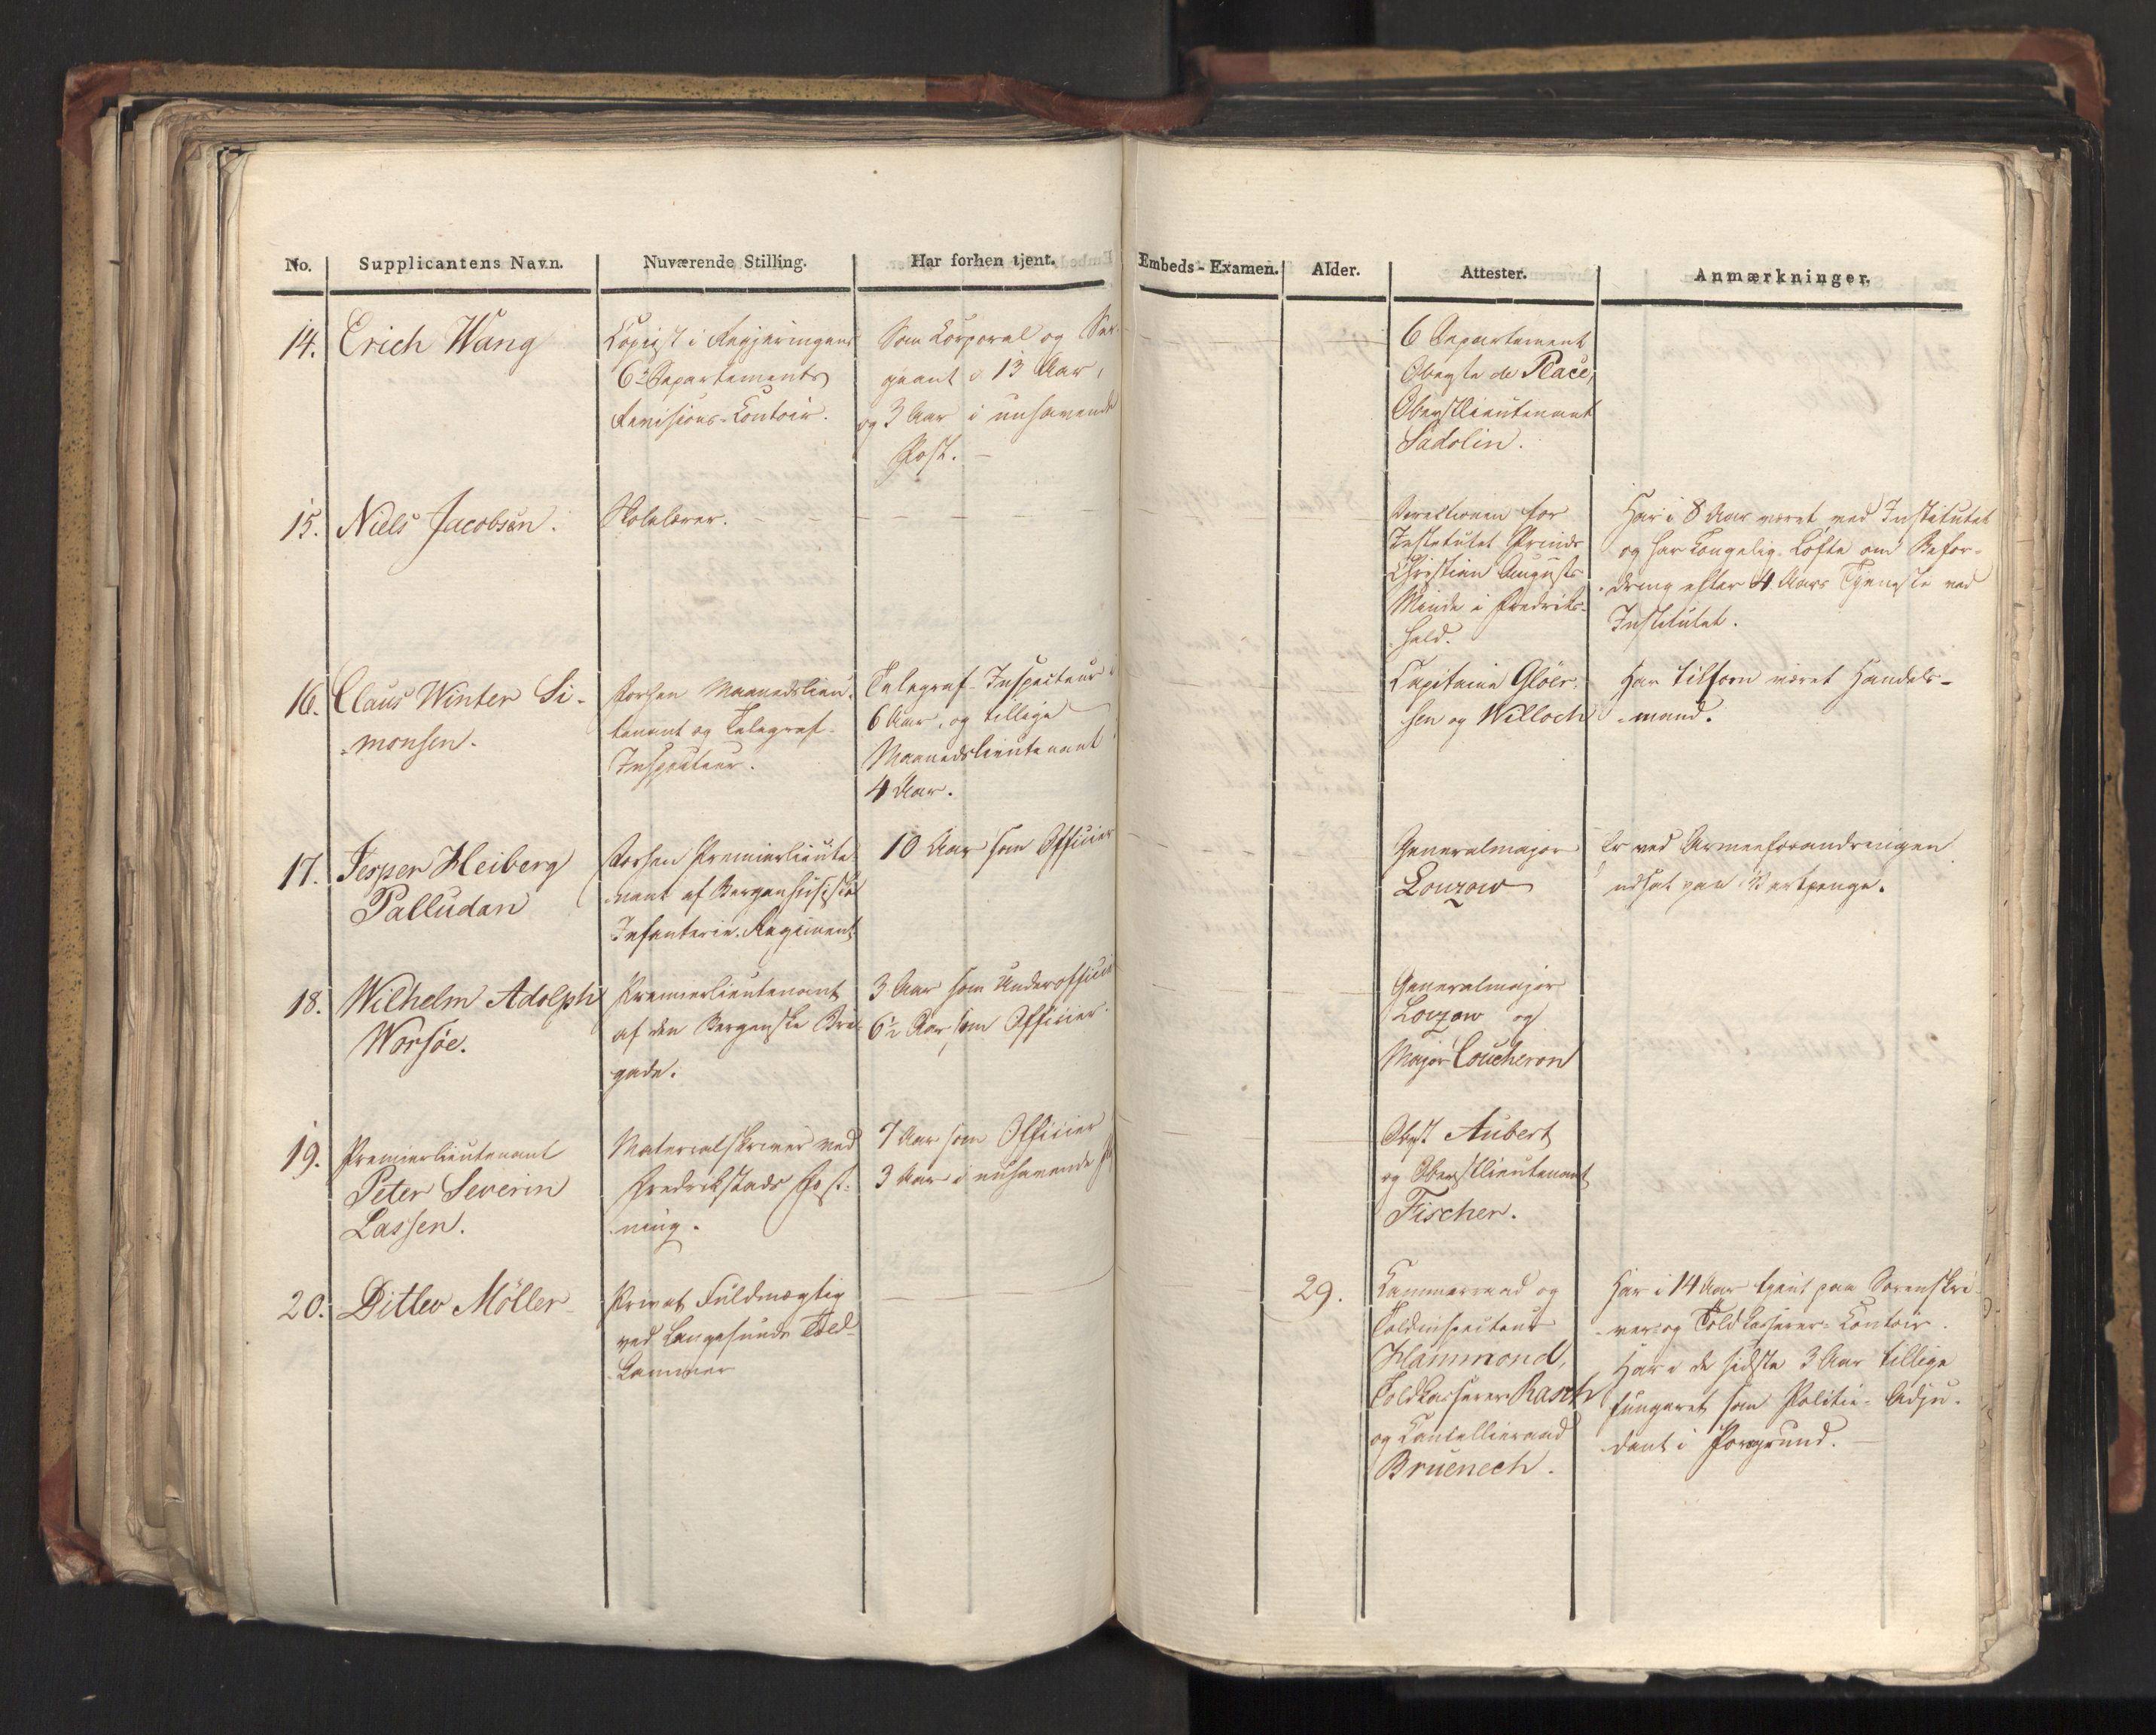 No. Supplicantens Navn. Nuværende Stilling. Har forhen tjent. Embeds-Examen. Alder. Attester. Anmærkninger.
14. Erich Wang
Copiist i Regjeringens
6te Departements
Revisions-Contoir.
Som Corporal og Ser-
geant i 13 Aar,
og 3 Aar i nuhavende
Post. —
6 Departement
Oberste de Place,
Oberstlieutenant
Sadolin.
15. Niels Jacobsen.
Skolelærer.
Directionen for
Institutet Prinds
Christian Augusts
Minde i Fredriks-
hald.
Har i 8 Aar været ved Institutet
og har Kongelig Løfte om Befor-
dring efter 4 Aars Tjeneste ved
Institutet.
16. Claus Winter Si-
monsen.
Forhen Maanedslieu-
tenant og Telegraf-
Inspecteur.
Telegraf-Inspecteur i
6 Aar, og tillige
Maanedslieutenant i
4 Aar.
Capitaine Gløer-
sen og Willoch
Har tilforn været Handels-
mand.
17. Jesper Heiberg
Palludan
Forhen Premierlieute-
nant af Bergenhusiske
Infanterie-Regiment
10 Aar som Officier
Generalmajor
Lowzow
Er ved Armeeforandringen
udsat paa Vartpenge.
18. Wilhelm Adolph
Worsøe.
Premierlieutenant
af den Bergenske Bri-
gade.
3 Aar som Underofficier
6½ Aar som Officier.
Generalmajor
Lowzow og
Major Coucheron
19. Premierlieutenant
Peter Severin
Lassen.
Materialskriver ved
Fredrikstads Fæst-
ning.
7 Aar som Officier
3 Aar i nuhavende
Oberst Aubert
og Oberstlieutenant
Fischer.
20. Ditlev Möller
Privat Fuldmægtig
ved Langesunds Told-
kammer
29.
Kammerraad og
Toldinspecteur
Hammond,
Toldkasserer Rasch
og Cancelliraad
Bruenech.
Har i 14 Aar tjent paa Sorenskri-
ver- og Toldkasserer-Contoir.
Har i de sidste 3 Aar tillige
fungeret som Politie-Adju-
dant i Porsgrund. —